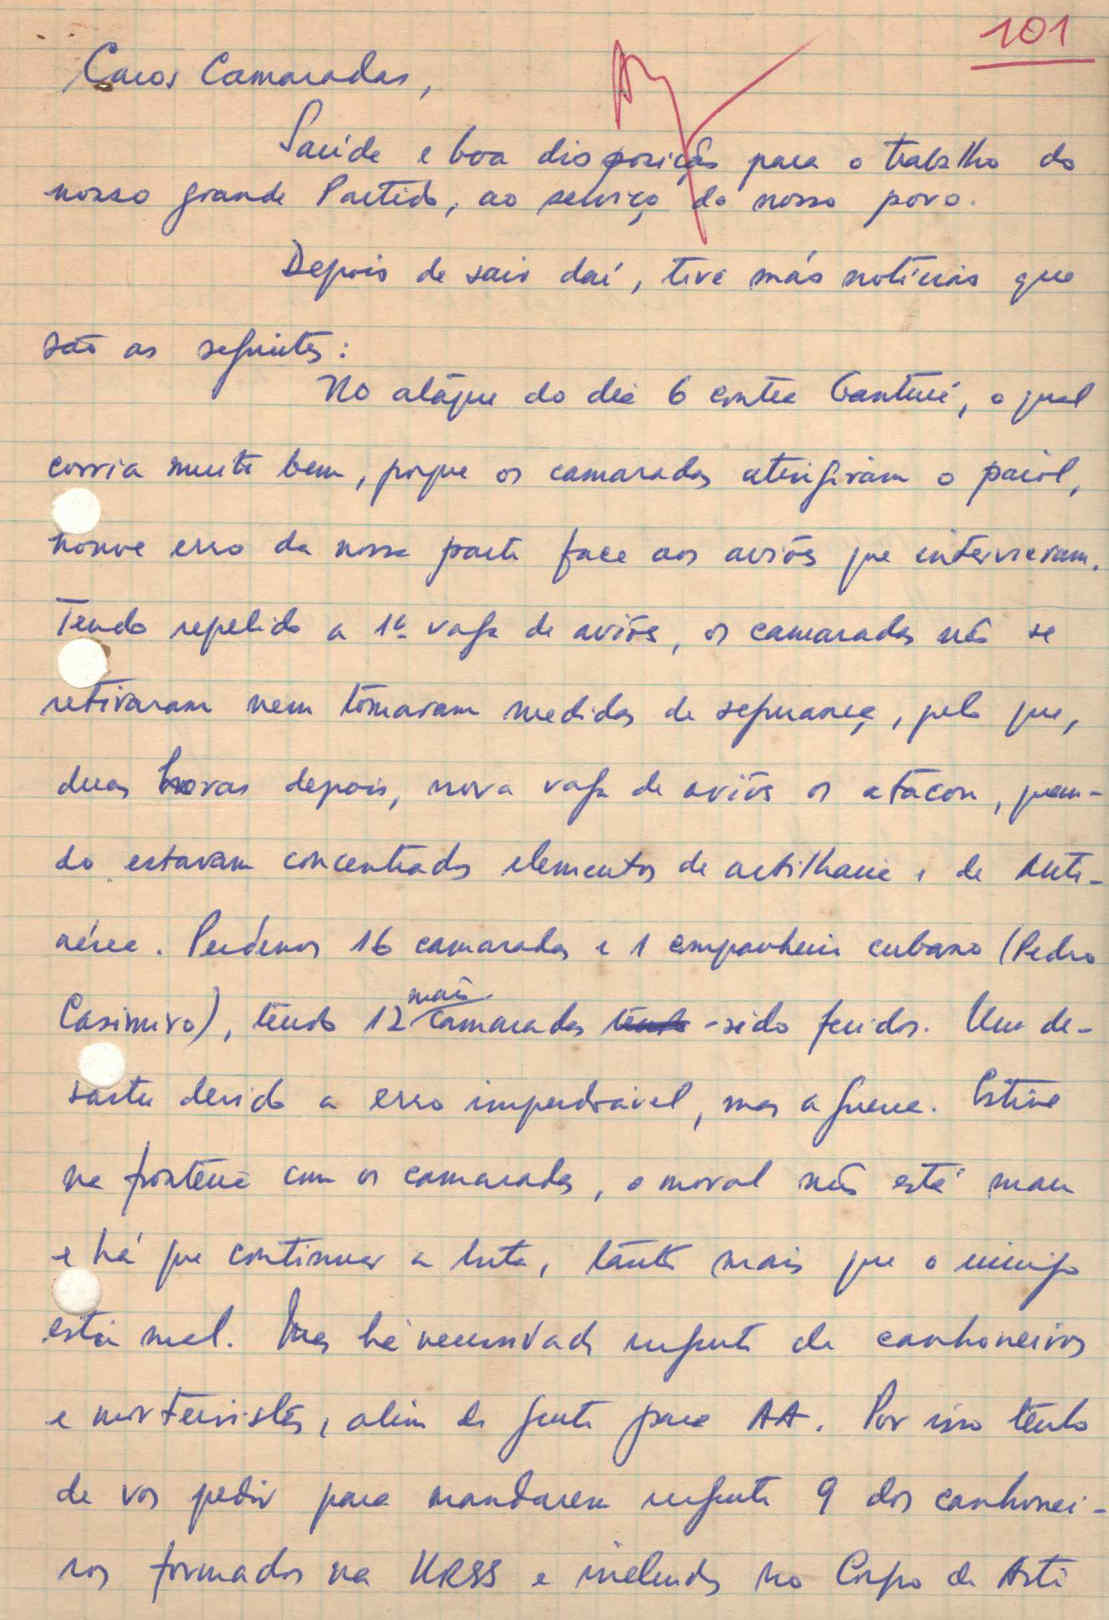 101
Caros Camaradas,
Saúde e boa disposição para o trabalho do
nosso grande Partido, ao serviço do nosso povo.
Depois de sair daí, tive más notícias que
são as seguintes:
No ataque do dia 6 contra Cantuié, o qual
corria muito bem, porque os camaradas atingiram o paiol,
houve erro da nossa parte face aos aviões que intervieram.
Tendo repelido a 1ª vaga de aviões, os camaradas não se
retiraram nem tomaram medidas de segurança, pelo que,
duas horas depois, nova vaga de aviões os atacou, quan-
do estavam concentrados elementos de artilharia e de Anti-
aérea. Perdemos 16 camaradas e 1 companheiro cubano (Pedro
Casimiro), tendo 12 mais camaradas tendo -sido feridos. Um de-
sastre devido a erro imperdoável, mas a guerra. Estive
na fronteira com os camaradas, o moral não está mau
e há que continuar a luta, tanto mais que o inimigo
está mal. Mas há necessidade urgente de canhoneiros
e morteiristas, além de gente para AA. Por isso tenho
de vos pedir para mandarem urgente 9 dos canhonei-
ros formados na URSS e incluidos no Corpo de Arti